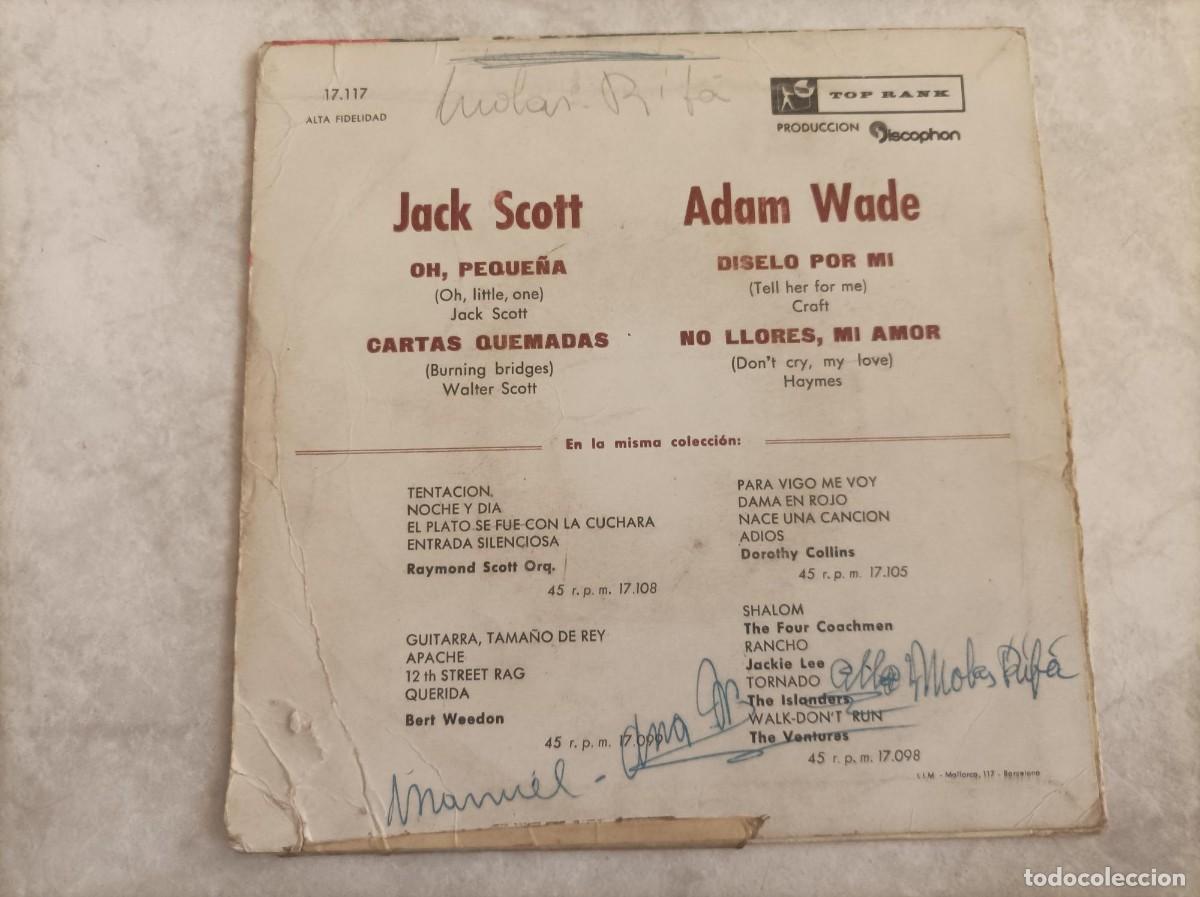 Molas Rifá
17.117
ALTA FIDELIDAD
TOP RANK
PRODUCCION Discophon
Jack Scott
OH, PEQUEÑA
(Oh, little, one)
Jack Scott
CARTAS QUEMADAS
(Burning bridges)
Walter Scott
Adam Wade
DISELO POR MI
(Tell her for me)
Craft
NO LLORES, MI AMOR
(Don't cry, my love)
Haymes
En la misma colección:
TENTACION,
NOCHE Y DIA
EL PLATO SE FUE CON LA CUCHARA
ENTRADA SILENCIOSA
Raymond Scott Orq.
45 r. p. m. 17.108
GUITARRA, TAMAÑO DE REY
APACHE
12 th STREET RAG
QUERIDA
Bert Weedon
45 r. p. m. 17.099
PARA VIGO ME VOY
DAMA EN ROJO
NACE UNA CANCION
ADIOS
Dorothy Collins
45 r. p. m. 17.105
SHALOM
The Four Coachmen
RANCHO
Jackie Lee
TORNADO
The Islanders
WALK-DON'T RUN
The Ventures
45 r. p. m. 17.098
Manuel - Ana Molas Rifá
I.I.M - Mallorca, 117 - Barcelona
todocoleccion